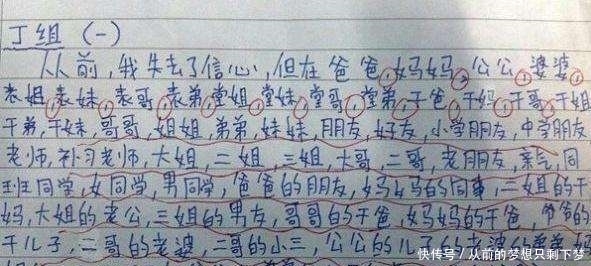 丁组（一）
从前,我失去了信心,但在爸爸,妈妈,公公,婆婆,
表姐,表妹,表哥,表弟,堂姐,堂妹,堂哥,堂弟,干爸,干妈,干哥,干姐
干弟,干妹,哥哥,姐姐,弟弟,妹妹,朋友,好友,小学朋友,中学朋友,
老师,补习老师,大姐,二姐,三姐,大哥,二哥,老朋友,亲戚,同
班同学,女同学,男同学,爸爸的朋友,妈妈的同事,二姐的干
妈,大姐的老公,三姐的男友,哥哥的干爸,妈妈的干爸,爷爷的
干儿子,二哥的老婆,二哥的小三,公公的儿子的老婆的爸爸妈
快传号/从前的梦想只剩下梦